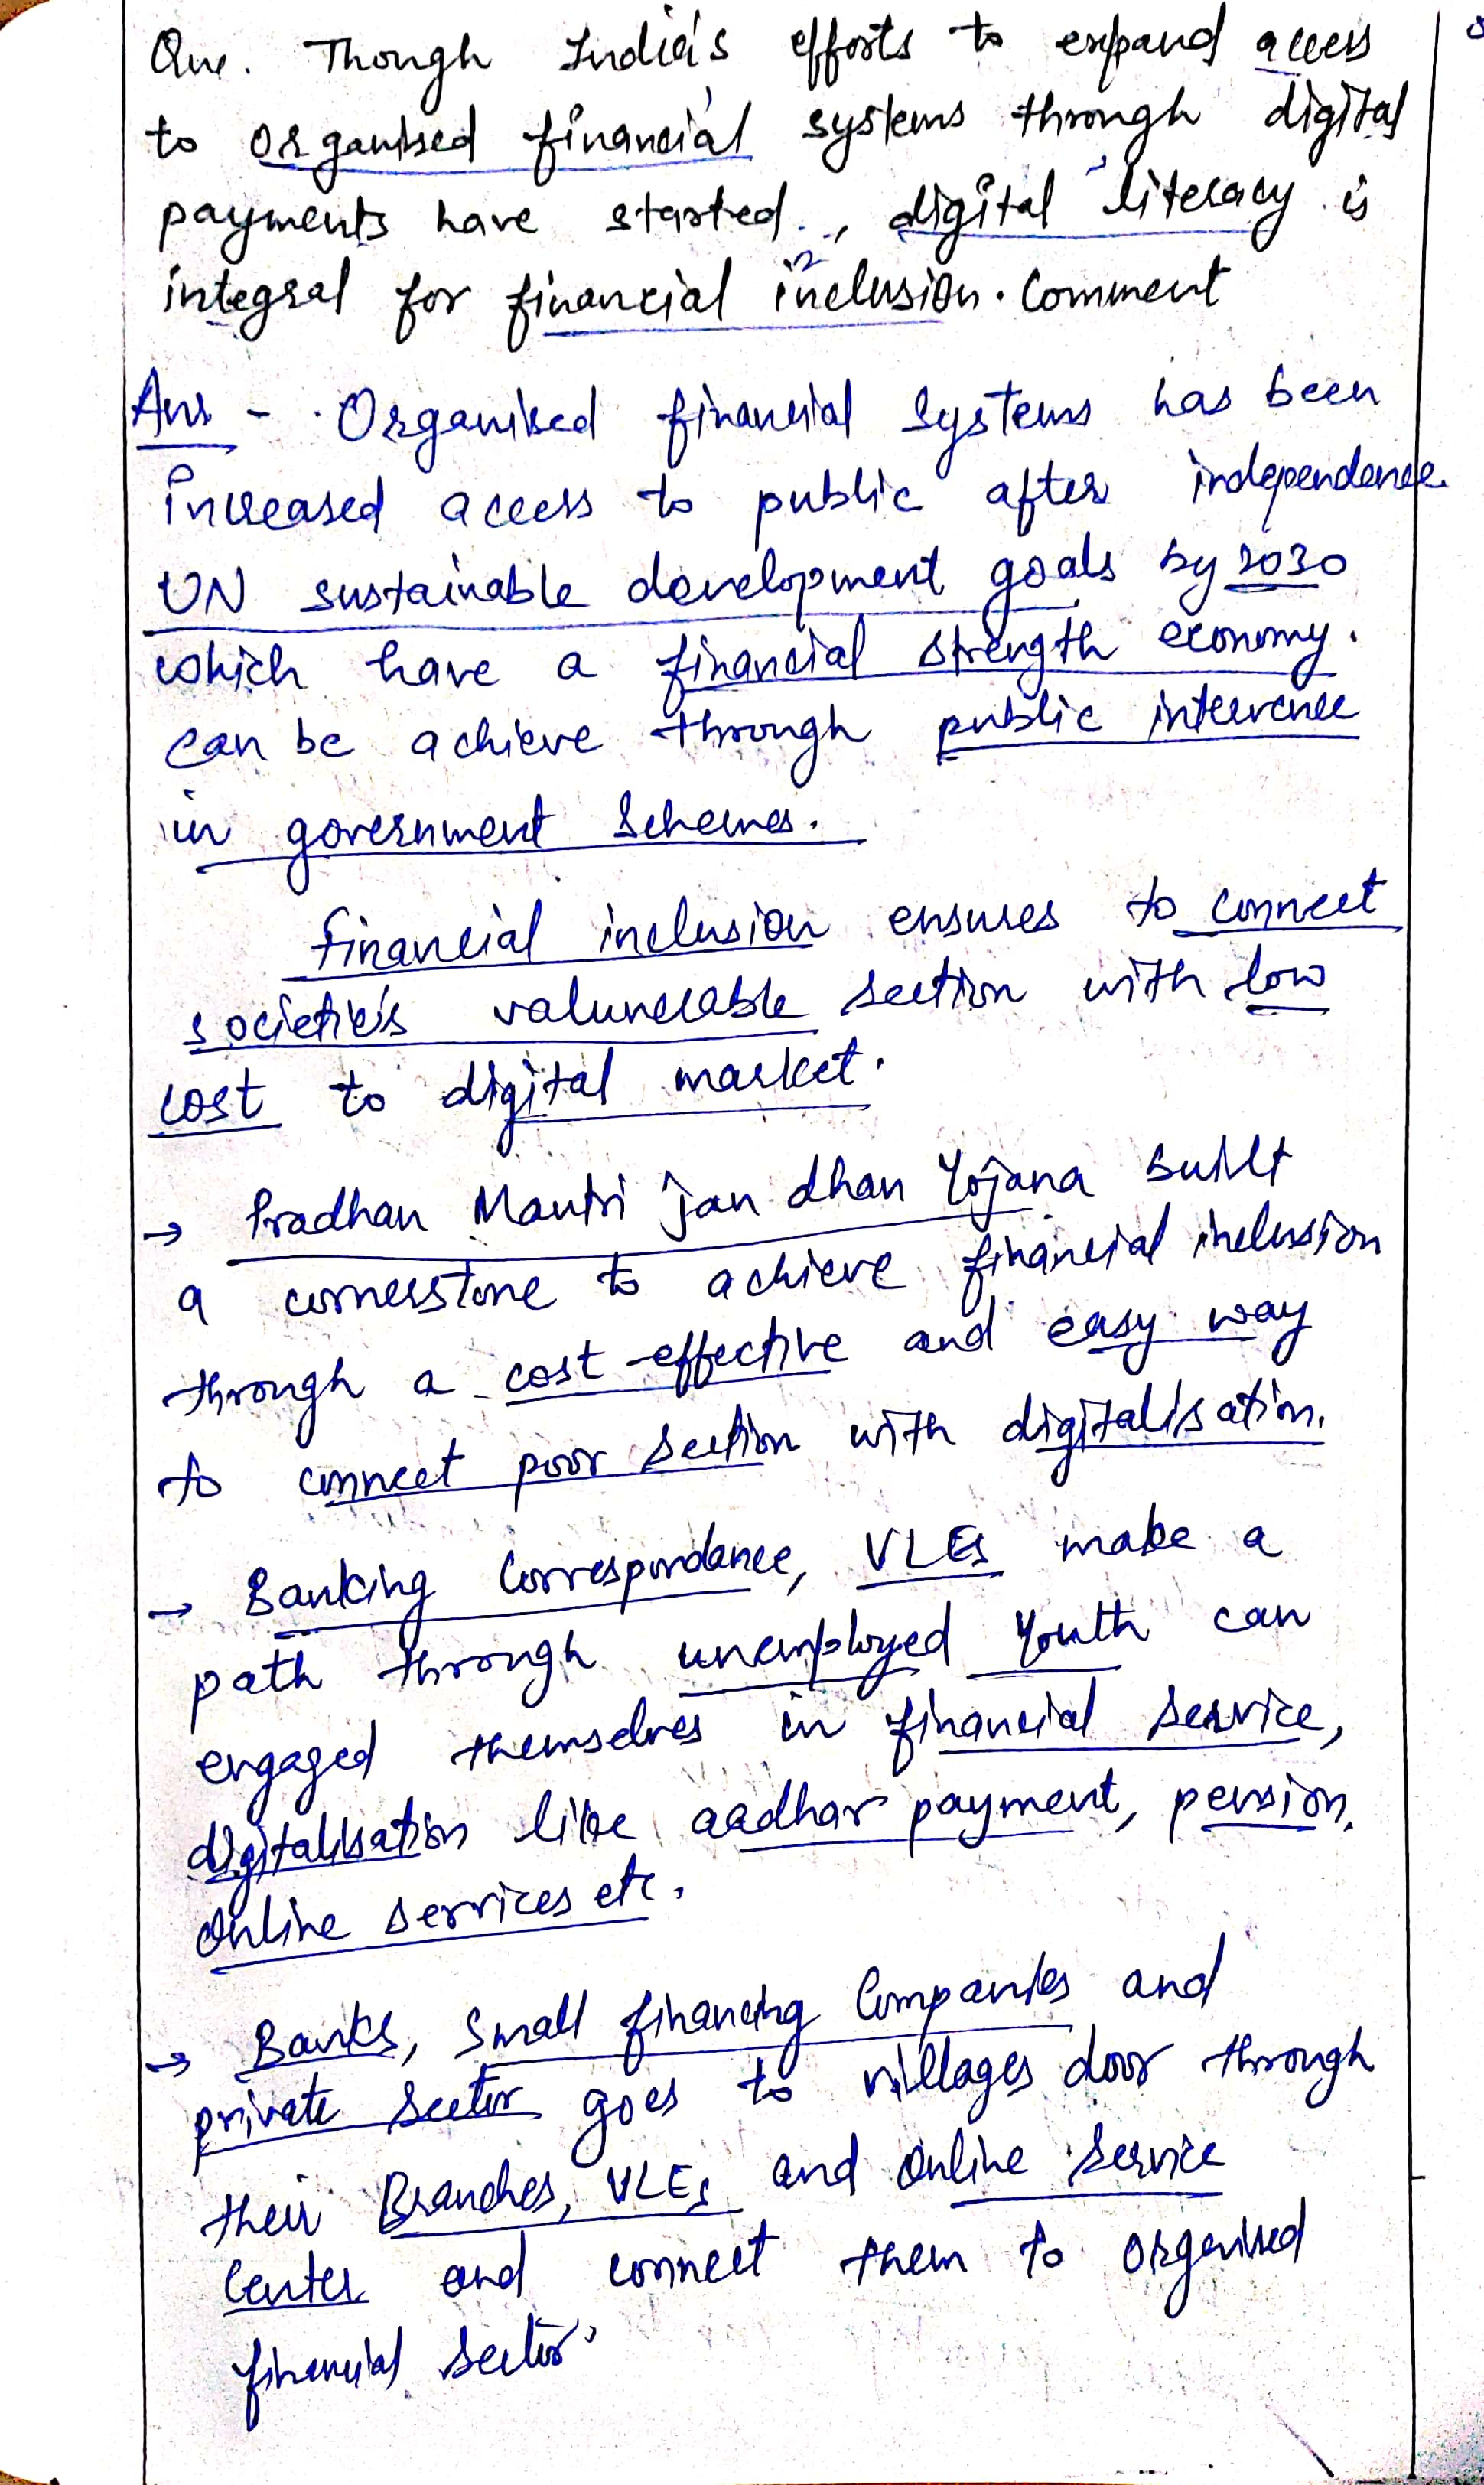 Que. Though India's efforts to expand access
to organised financial systems through digital
payments have started, digital literacy is
integral for financial inclusion. Comment
Ans - Organised financial systems has been
increased access to public after independence.
UN sustainable development goals by 2030
which have a financial strength economy.
can be achieve through public
in government schemes.
financial inclusion ensures to connect
societie's valunerable section with low
cost to digital market.
→ Pradhan Mantri Jan dhan Yojana built
a cornerstone to achieve financial inclusion
through a cost-effective and easy way
to connect poor section with digitalisation.
→ Banking Correspondance, VLEs make a
path through unemployed Youth can
engaged themselves in financial service,
digitalisation like aadhar payment, pension,
online services etc.
→ Banks, Small financing Companies and
private Sector goes to villages door through
their Branches, VLEs and online service
Center and connect them to organised
financial sector.